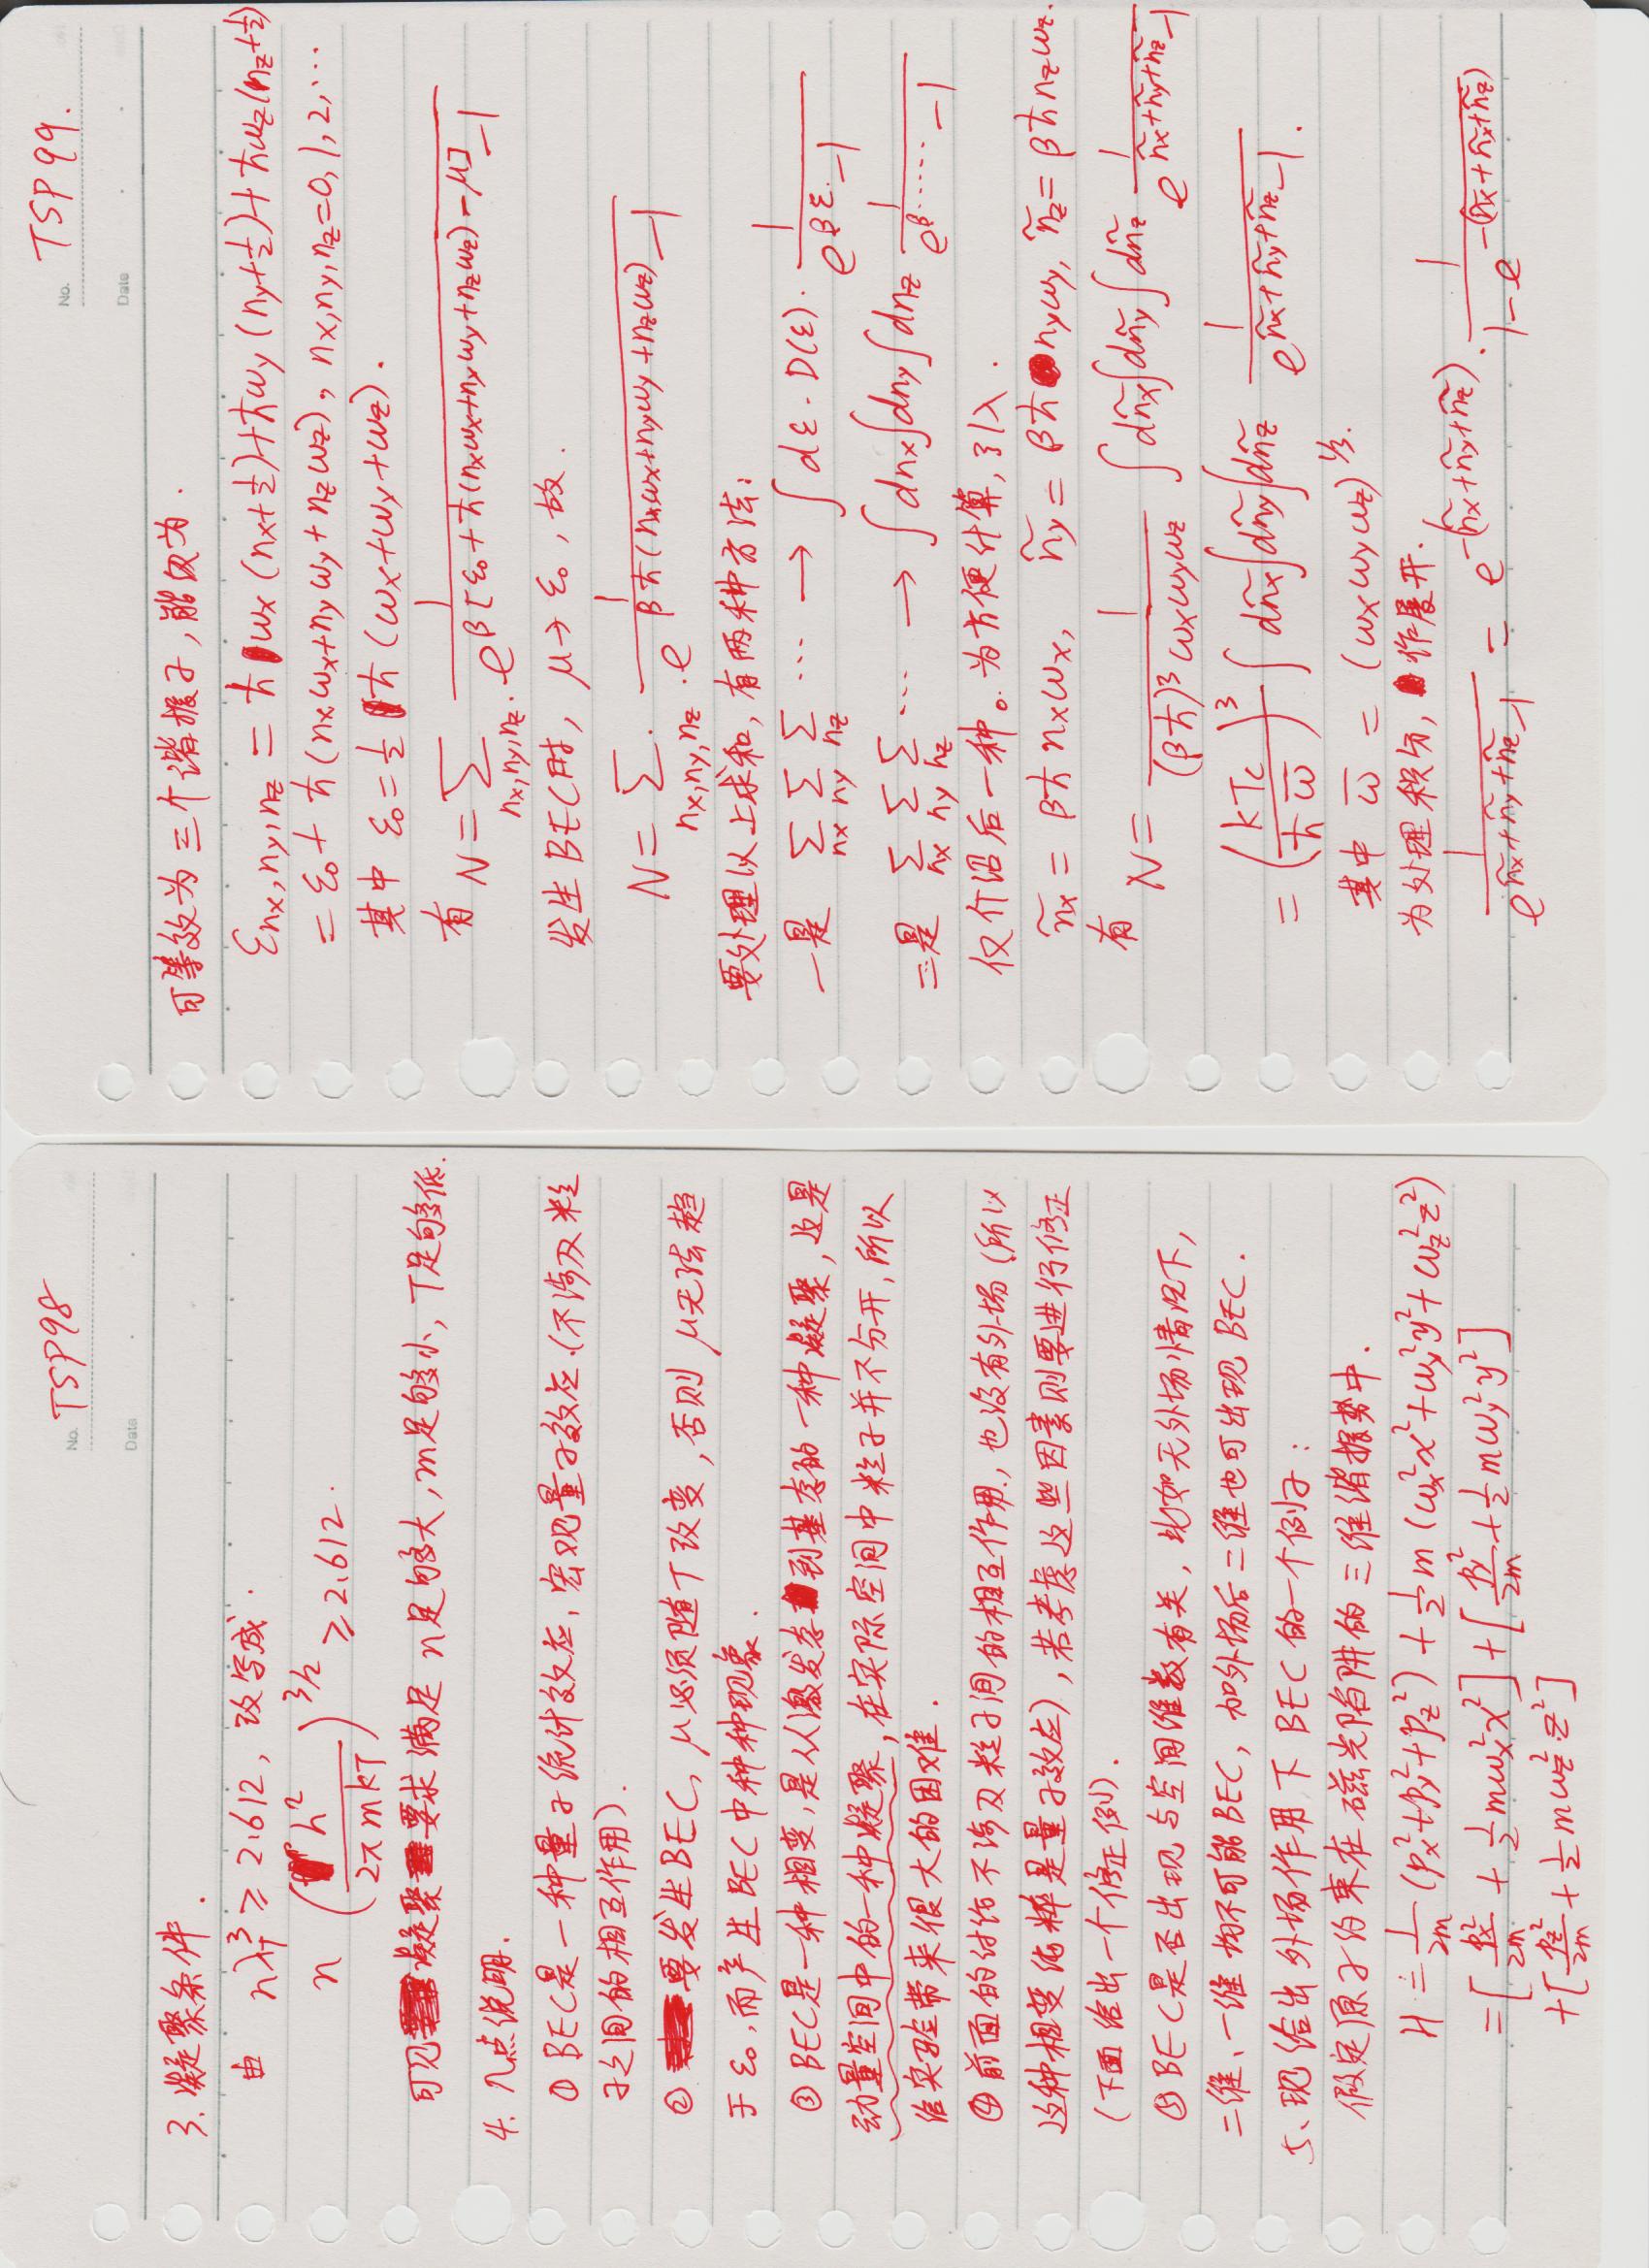 No. TSP98
Date
3. 凝聚条件.
由 nλ_T^3 ≥ 2.612, 改写成.
n (h^2 / 2πmkT)^{3/2} ≥ 2.612.
可见凝聚要求满足 n足够大, m足够小, T足够低.
4. 几点说明.
① BEC是一种量子统计效应, 宏观量子效应.(不涉及粒
子之间的相互作用).
② 要发生BEC, μ必须随T改变, 否则 μ无法趋
于 ε₀, 而产生BEC中种种现象.
③ BEC是一种相变, 是从激发态到基态的一种凝聚, 这是
动量空间中的一种凝聚, 在实际空间中粒子并不分开, 所以
给实验带来很大的困难.
④ 前面的讨论不涉及粒子间的相互作用, 也没有外场 (所以
这种相变纯粹是量子效应), 若考虑这些因素则要进行修正
(下面给出一个修正例).
⑤ BEC是否出现与空间维数有关, 比如无外场情况下,
二维、一维均不可能BEC, 加外场后二维也可出现 BEC.
5、现给出外场作用下 BEC 的一个例子:
假定原子约束在磁光陷阱的三维谐振势中.
H = 1/2m (p_x^2+p_y^2+p_z^2) + 1/2 m (ω_x^2x^2+ω_y^2y^2+ω_z^2z^2)
= [p_x^2/2m + 1/2 mω_x^2x^2] + [p_y^2/2m + 1/2 mω_y^2y^2]
+ [p_z^2/2m + 1/2 mω_z^2·z^2]
No. TSP99.
Date
可等效为三个谐振子, 能级为.
ε_{nx,ny,nz} = ħω_x (n_x+1/2) + ħω_y (n_y+1/2) + ħω_z (n_z+1/2)
= ε₀ + ħ(n_xω_x+n_yω_y+n_zω_z), n_x,n_y,n_z=0,1,2,…
其中 ε₀ = 1/2 ħ (ω_x+ω_y+ω_z).
有 N = Σ_{nx,ny,nz} 1 / (e^{β[ε₀+ħ(n_xω_x+n_yω_y+n_zω_z)-μ]} -1)
发生BEC时, μ→ε₀, 故.
N = Σ_{nx,ny,nz} 1 / (e^{βħ(n_xω_x+n_yω_y+n_zω_z)} -1)
要处理以上求和, 有两种方法:
一是 Σ_{nx} Σ_{ny} Σ_{nz} … → ∫dε·D(ε)· 1/(e^{βε}-1)
二是 Σ_{nx} Σ_{ny} Σ_{nz} … → ∫dn_x∫dn_y∫dn_z 1/(e^{β……}-1)
仅介绍后一种。为方便计算, 引入.
ñ_x = βħn_xω_x, ñ_y = βħn_yω_y, ñ_z = βħn_zω_z.
有 N = 1/((βħ)^3 ω_xω_yω_z) ∫dñ_x∫dñ_y∫dñ_z 1/(e^{ñ_x+ñ_y+ñ_z}-1)
= (kT_c / ħω̄)^3 ∫dñ_x∫dñ_y∫dñ_z 1/(e^{ñ_x+ñ_y+ñ_z}-1).
其中 ω̄ = (ω_xω_yω_z)^{1/3}.
为处理积分, 作展开.
1/(e^{ñ_x+ñ_y+ñ_z}-1) = e^{-(ñ_x+ñ_y+ñ_z)}· 1/(1-e^{-(ñ_x+ñ_x+ñ_z)})